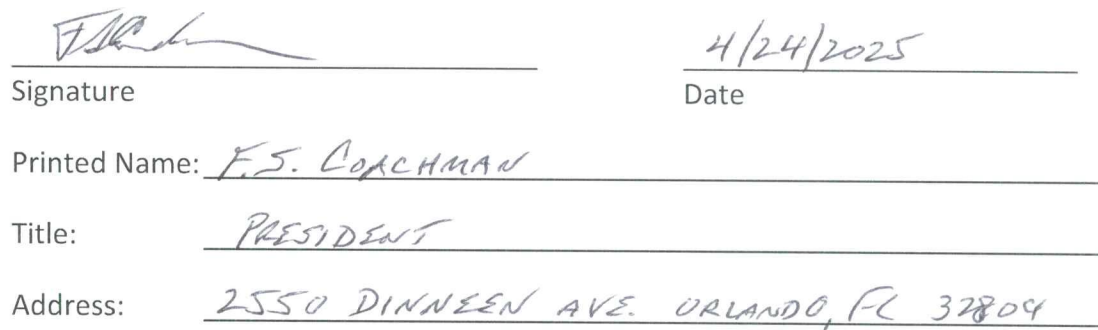 4/24/2025
Signature Date
Printed Name: F.S. COACHMAN
Title: PRESIDENT
Address: 2550 DINNEEN AVE. ORLANDO, FL 32804